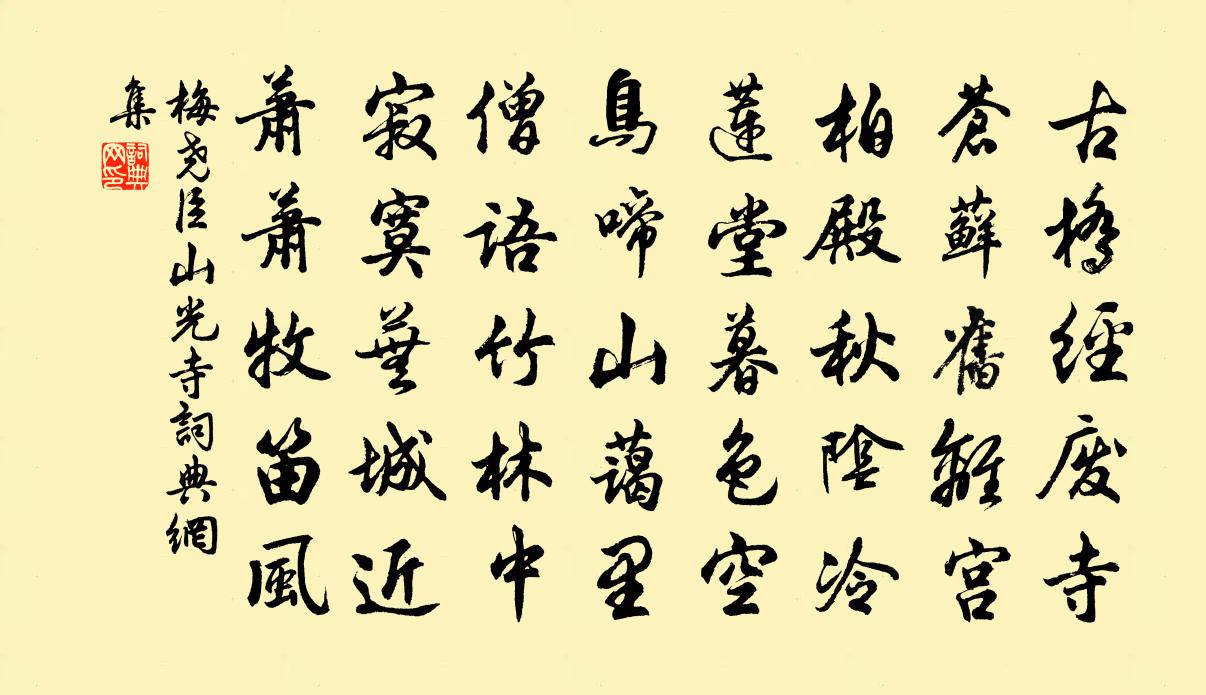 古橋經廢寺
蒼蘚舊離宮
柏殿秋陰冷
蓮堂暮色空
鳥啼山藹里
僧語竹林中
寂寞蕪城近
蕭蕭牧笛風
梅堯臣山光寺詞典網
集
詞典
网印